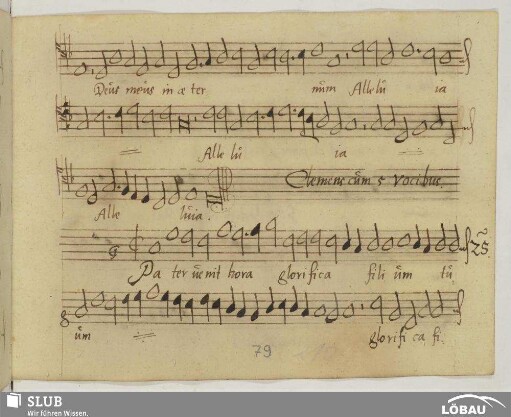 Deus meus in æ ter num Allelu ia
Alle lu ia
Clemens cum 5 vocibus.
Alle luia.
Pa ter venit hora glorifica fili um tu
25.
um glorifi ca fi.
79
SLUB
Wir führen Wissen.
LÖBAU